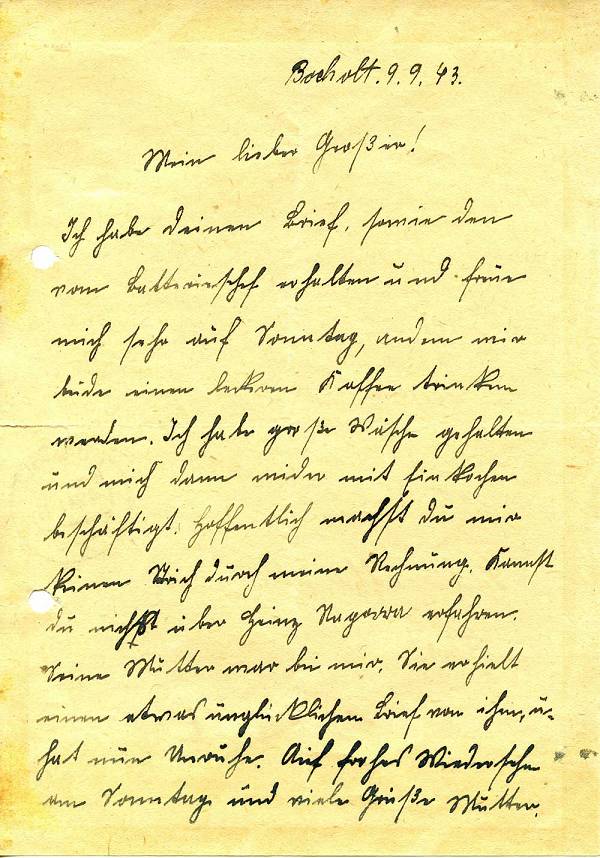 Bocholt. 9. 9. 43.
Mein lieber Großer!
Ich habe deinen Brief, sowie den
vom Batteriechef erhalten und freue
mich sehr auf Sonntag, an dem wir
beide einen leckeren Kaffee trinken
werden. Ich habe große Wäsche gehalten
und mich dann wieder mit Einkochen
beschäftigt. Hoffentlich machst du mir
keinen Strich durch meine Rechnung. Kannst
du nichts über Heinz erfahren.
Seine Mutter war bei mir. Sie erhielt
einen etwas unglücklichen Brief von ihm, u.
hat nun Unruhe. Auf frohes Wiedersehn
am Sonntag und viele Grüße Mutter.